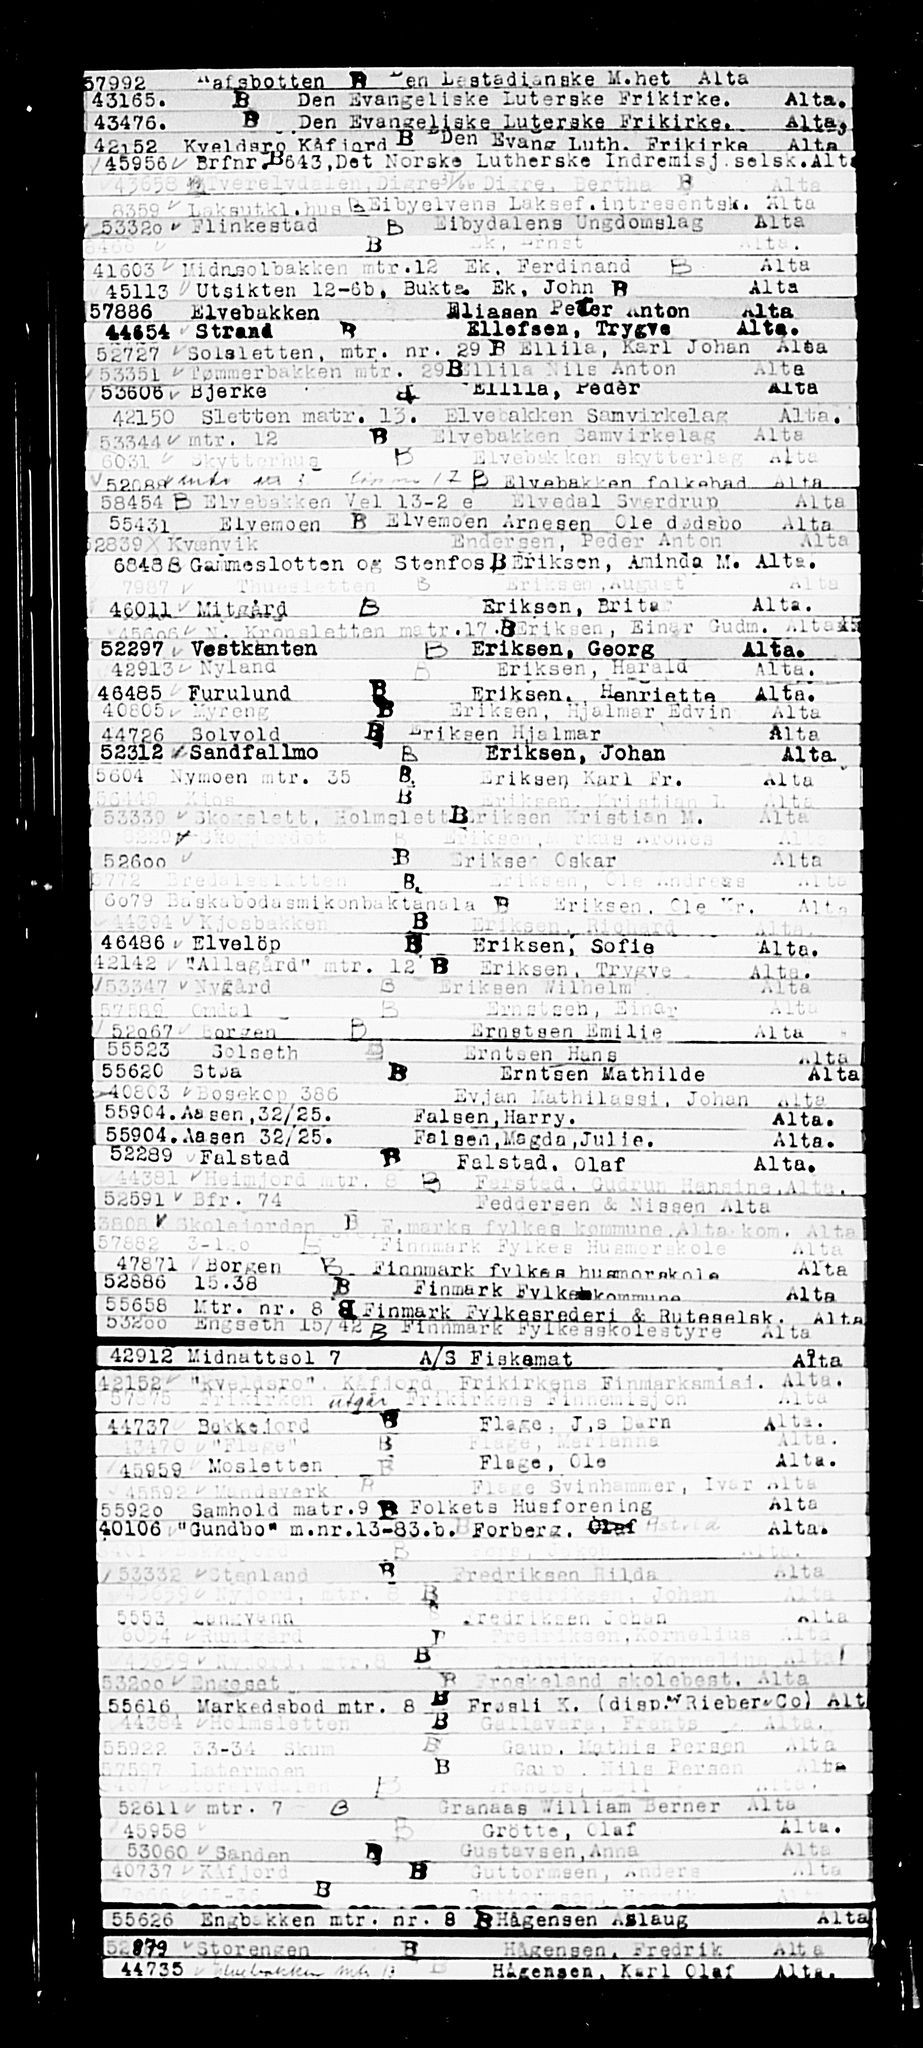 57992 afsbotten B en Læstadianske M.het Alta
43165. B Den Evangeliske Luterske Frikirke. Alta.
43476. B Den Evangeliske Luterske Frikirke. Alta,
42152 Kveldsro Kåfjord B Den Evang Luth. Frikirke Alta
45956 Brfnr. B 643, Det Norske Lutherske Indremisj.selsk. Alta
43658 lverelvdalen, Digre Digre, Bertha B Alta
8359 Laksutkl.hus B Eibyelvens Laksef.intresentsk. Alta
53320 Flinkestad B Eibydalens Ungdomslag Alta
B Ek, Ernst Alta.
41603 Midnsolbakken mtr.12 Ek, Ferdinand B Alta
45113 Utsikten 12-6b, Bukta Ek, John B Alta
57886 Elvebakken Eliasen Peter Anton Alta
44654 Strand B Ellefsen, Trygve Alta.
52727 Solsletten, mtr. nr. 29 B Ellila, Karl Johan Alta
53351 Tømmerbakken mtr. 29 B Ellila Nils Anton Alta
53606 Bjerke Ellila, Peder Alta
42150 Sletten matr. 13. Elvebakken Samvirkelag Alta.
53344 mtr. 12 B Elvebakken Samvirkelag Alta
6031 Skytterhus B Elvebakken skytterlag Alta
52088 17 B Elvebakken folkebad Alta
58454 B Elvebakken Vel 13-2 e Elvedal Sverdrup Alta
55431 Elvemoen B Elvemoen Arnesen Ole dødsbo Alta
52839 Kvænvik Endersen, Peder Anton Alta
6848 B Gammeslotten og Stenfos B Eriksen, Aminda M. Alta.
7987 Thuesletten B Eriksen, August Alta
46011 Mitgård B Eriksen, Brita Alta.
45606 N. Kronsletten matr.17. B Eriksen, Einar Gudm. Alta
52297 Vestkanten B Eriksen, Georg Alta.
42913 Nyland B Eriksen, Harald Alta.
46485 Furulund B Eriksen, Henriette Alta.
40805 Myreng B Eriksen, Hjalmar Edvin Alta
44726 Solvold B Eriksen Hjalmar Alta
52312 Sandfallmo B Eriksen, Johan Alta.
5604 Nymoen mtr. 35 B. Eriksen Karl Fr. Alta
56449 B Eriksen, Kristian L Alta
53339 Skogslett, Holmslett B Eriksen Kristian M. Alta
Skogjordet B Eriksen, Markus Arones Alta
52600 B Eriksen Oskar Alta
5772 Bredalesletten B. Eriksen, Ole Andreas Alta
6079 Baskabodasmikonbaktanala B Eriksen, Ole Kr. Alta
44394 Kjosbakken B Eriksen, Richard Alta.
46486 Elveløp B Eriksen, Sofie Alta.
42142 "Allagård" mtr. 12 B Eriksen, Trygve Alta.
53347 Nygård B Eriksen Wilhelm Alta
57589 Omdal B Ernstsen, Einar Alta
52067 Borgen B Ernstsen Emilie Alta
55523 Solseth B Erntsen Hans Alta
55620 Støa B Erntsen Mathilde Alta
40803 Bosekop 386 Evjan Mathilassi, Johan Alta
55904. Aasen, 32/25. Falsen, Harry. Alta.
55904. Aasen 32/25. Falsen, Magda, Julie. Alta.
52289 Falstad B Falstad, Olaf Alta.
44381 Heimjord mtr. 8 B Farstad, Gudrun Hansine, Alta.
52591 Bfr. 74 Feddersen & Nissen Alta
3808 Skolejorden B F.marks fylkes kommune, Alta kom. Alta
57882 3-120 B Finnmark Fylkes Husmorskole Alta
47871 Borgen B Finnmark fylkes husmorskole Alta
52886 15.38 B Finmark Fylkeskommune Alta
55658 Mtr. nr. 8 B Finmark Fylkesrederi & Ruteselsk. Alta
53200 Engseth 15/42 B Finnmark Fylkesskolestyre Alta
42912 Midnattsol 7 A/S Fiskemat Alta
42152 "Kveldsro", Kåfjord Frikirkens Finmarksmisi. Alta.
57875 Frikirken utgår Frikirkens Finnemisjon Alta
44737 Bakkejord B Flage, J,s Barn Alta.
43470 "Flage" B Flage, Marianna Alta.
45959 Mosletten B Flage, Ole Alta.
45592 Mandsverk B Flage Svinhammer, Ivar Alta
55920 Samhold matr.9 B Folkets Husforening Alta
40106 "Gundbo" m.nr.13-83.b. B Forberg, Olaf Astrid Alta.
B Alta.
53332 Stenland B Fredriksen Hilda Alta
Nyjord, mtr. 8 B Fredriksen, Johan Alta
5553 Langvann Fredriksen Johan Alta
6054 Rundgård Fredriksen, Kornelius Alta
Nyjord, mtr.8 B Fredriksen, Kornelius Alta
53200 Engeset B Froskeland skolebest. Alta
55616 Markedsbod mtr. 8 B Frøsli K. (disp. Rieber Co) Alt
44384 Holmsletten B Gallavara, Frants Alta.
55922 33-34 Skum B Gaup, Mathis Persen Alta
57597 Latermoen B Gaup, Nils Persen Alta
Storelvdalen B Alta.
52611 mtr. 7 B Granaas William Berner Alta
45958 B Grøtte, Olaf Alta.
53060 Sanden B Gustavsen, Anna Alta
40737 Kåfjord B Guttormsen, Anders Alta
B Guttormsen, Alta
55626 Engbakken mtr. nr. 8 B Hågensen Aslaug Alta
52879 Storengen B Hågensen, Fredrik Alta
44735 Elvebakken mtr 13 B Hågensen, Karl Olaf Alta.